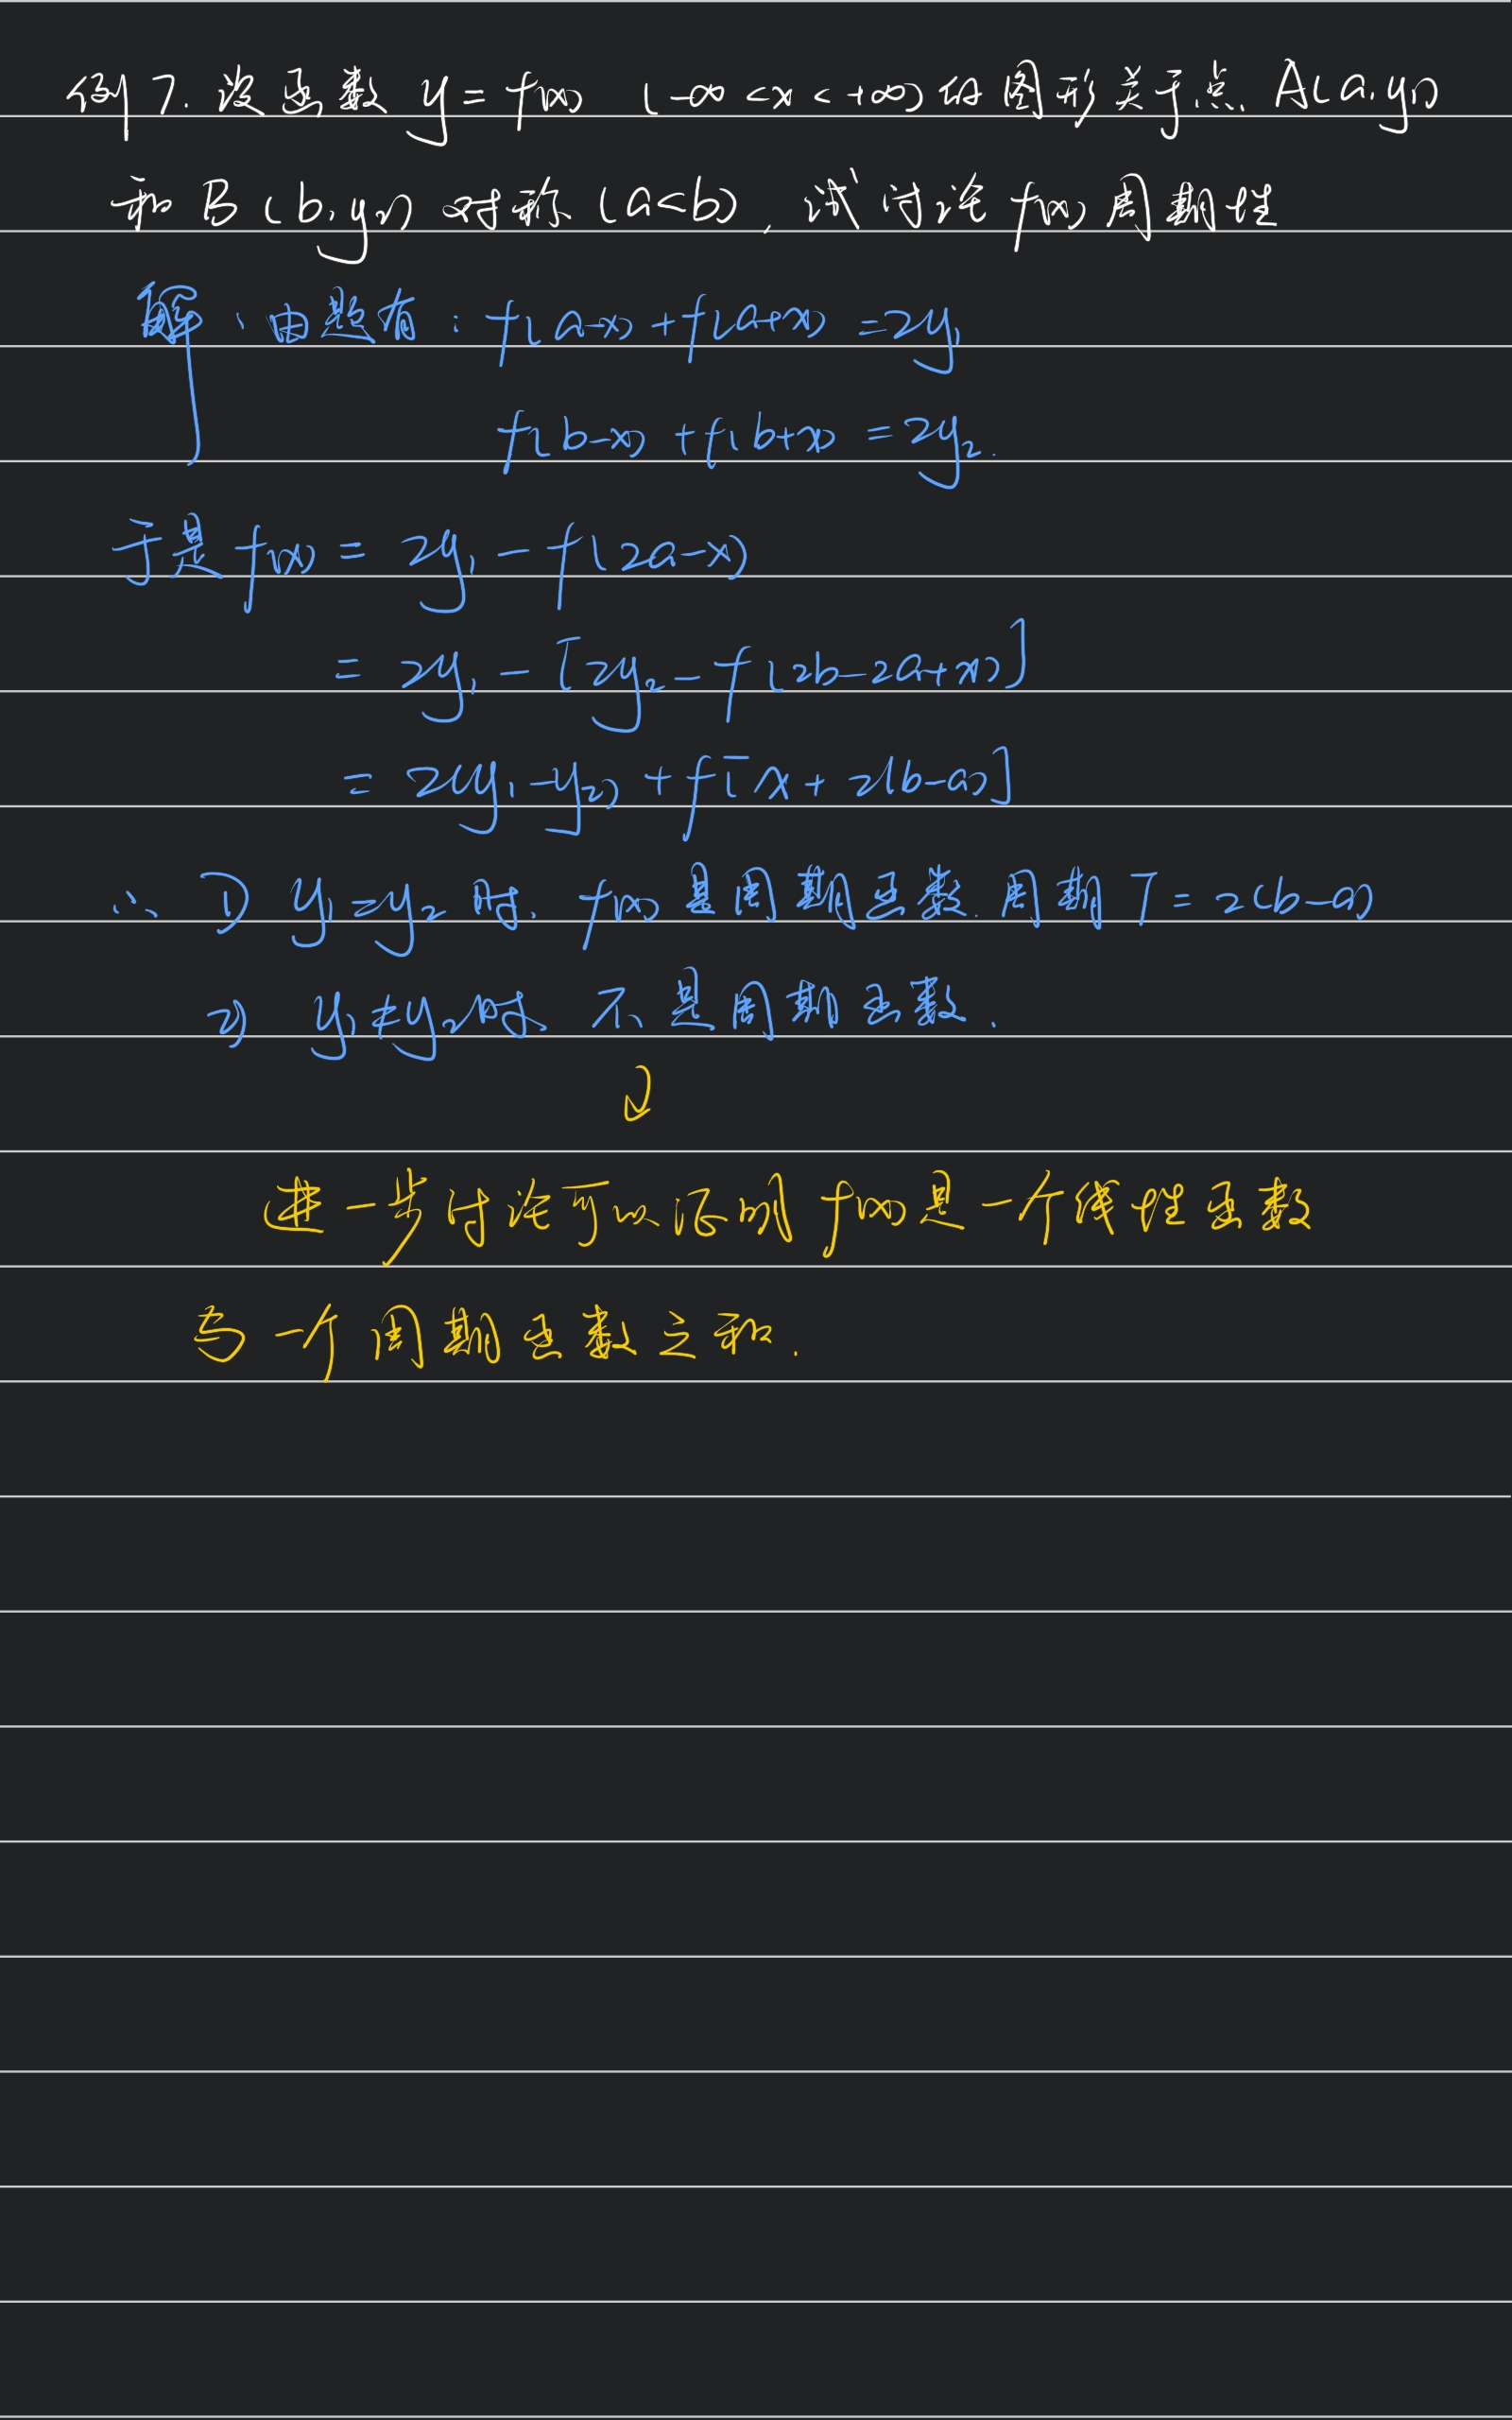 例7. 设函数 y=f(x) (-∞<x<+∞)的图形关于点 A(a,y₁)
和 B(b,y₂) 对称(a<b), 试讨论 f(x) 周期性
解、由题有: f(a-x)+f(a+x)=2y₁
f(b-x)+f(b+x)=2y₂.
于是 f(x) = 2y₁-f(2a-x)
= 2y₁-[2y₂-f(2b-2a+x)]
= 2(y₁-y₂)+f[x+2(b-a)]
∴ 1) y₁=y₂时. f(x)是周期函数.周期T=2(b-a)
2) y₁≠y₂时 不是周期函数.
进一步讨论可以证明 f(x)是一个线性函数
与一个周期函数之和.